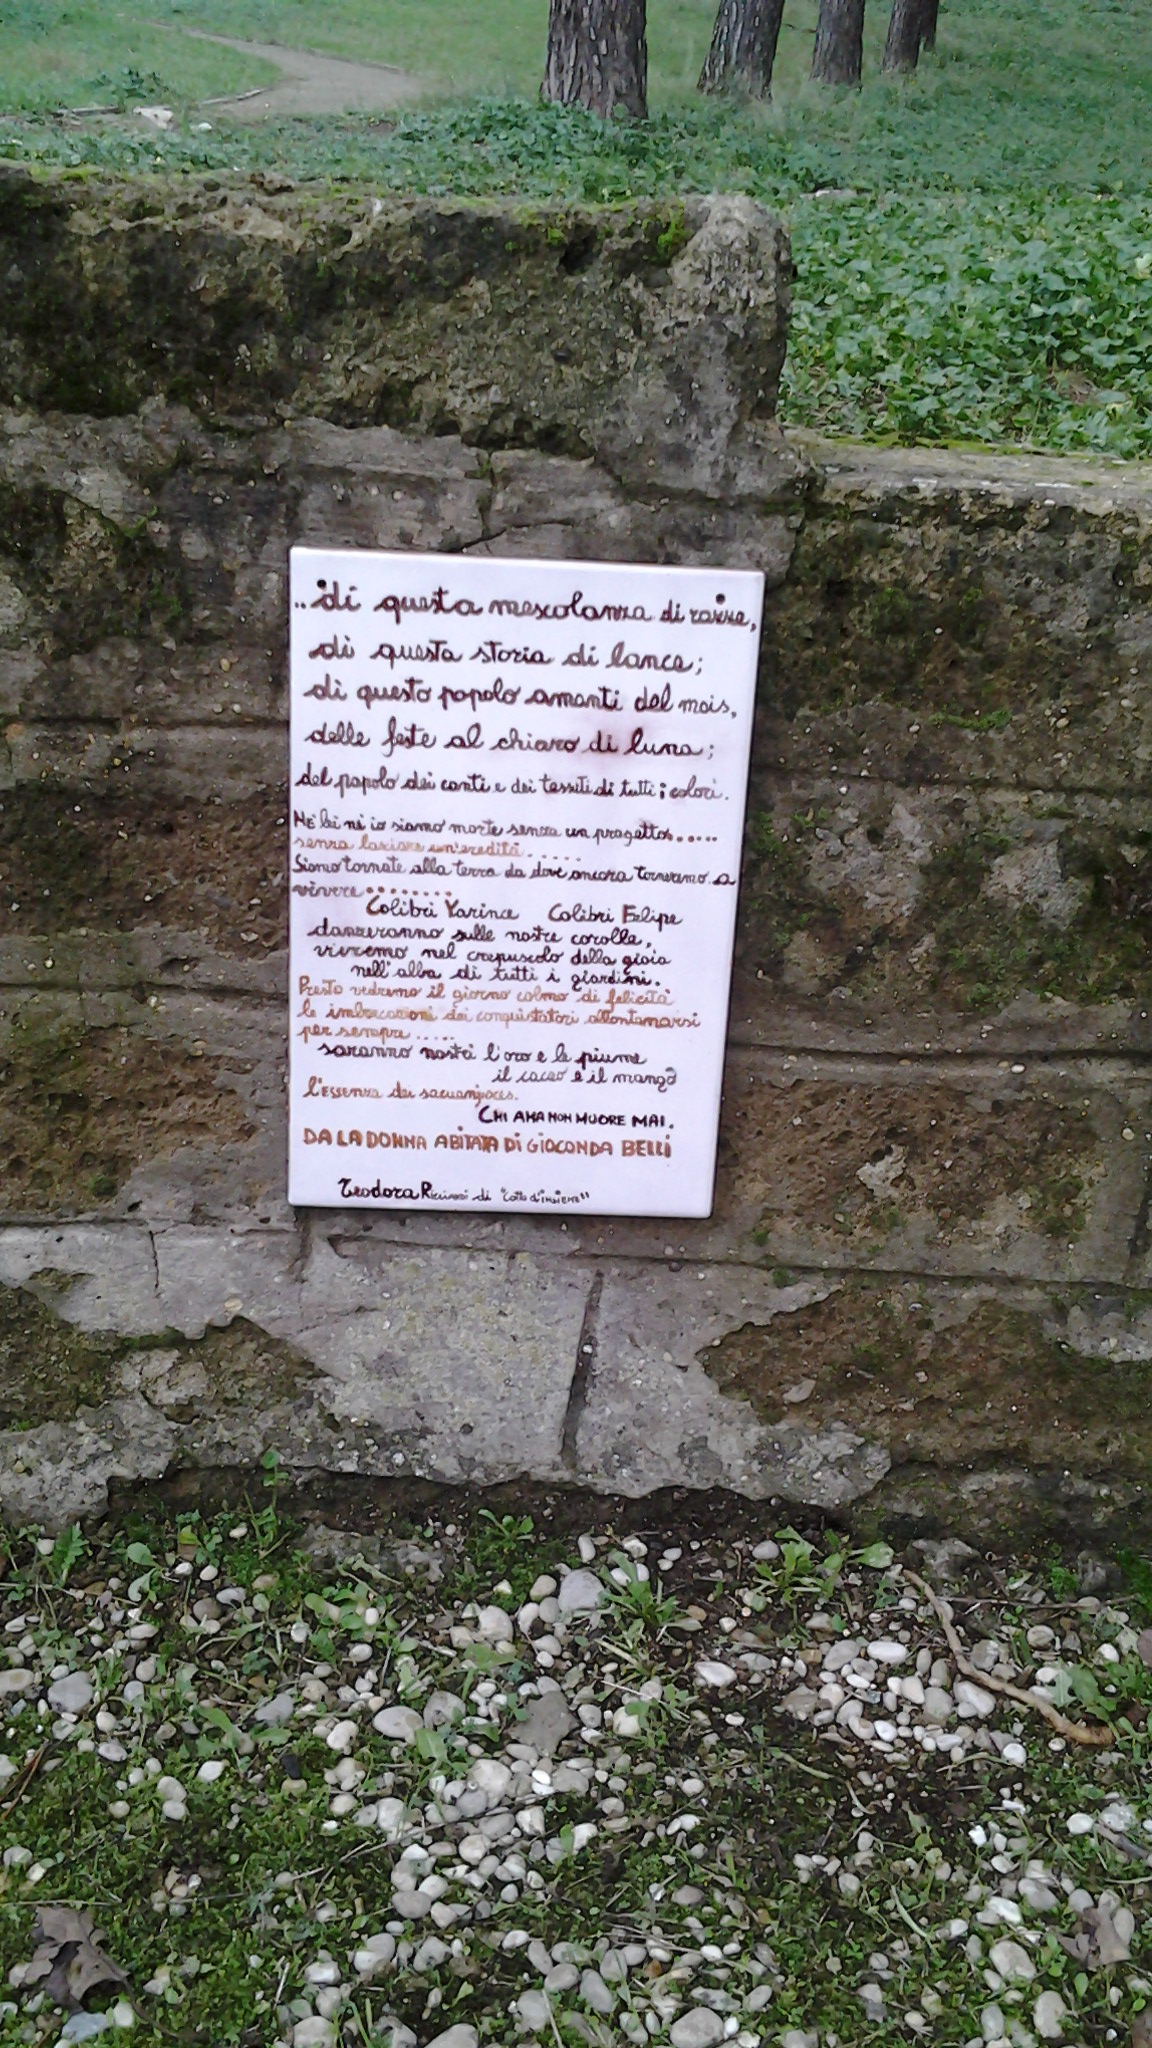 ..di questa mescolanza di razze,
di questa storia di lance;
di questo popolo amanti del mais,
delle feste al chiaro di luna;
del popolo dei canti e dei tessuti di tutti i colori.
NÈ lei nè io siamo morte senza un progetto.....
senza lasciare un'eredità.....
Siamo tornate alla terra da dove ancora torneremo a
vivere........
Colibrì Yarince Colibrì Felipe
danzeranno sulle nostre corolle,
vivremo nel crepuscolo della gioia
nell'alba di tutti i giardini.
Presto vedremo il giorno colmo di felicità
le imbarcazioni dei conquistatori allontanarsi
per sempre.....
saranno nostri l'oro e le piume
il cacao e il mango
l'essenza dei sacuanjoces.
CHI AMA NON MUORE MAI.
DA LA DONNA ABITATA DI GIOCONDA BELLI
Teodora di "Cotto d'insieme"